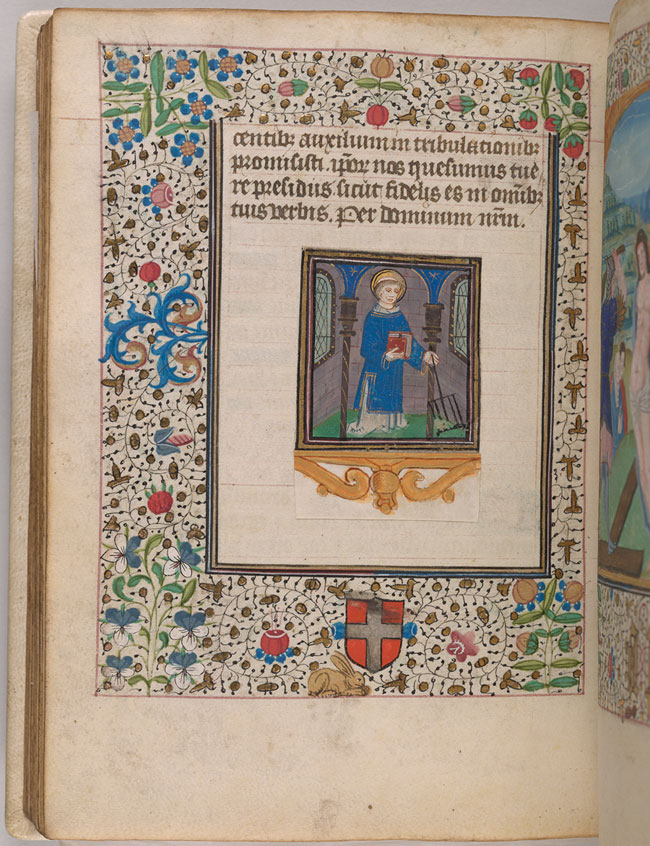 centibꝫ auxilium in tribulationibꝫ
promisisti. ip̄oꝝ nos quesumus tue
re presidiis sicut fidelis es in om̄ibꝫ
tuis verbis. Per dominum nr̄m.